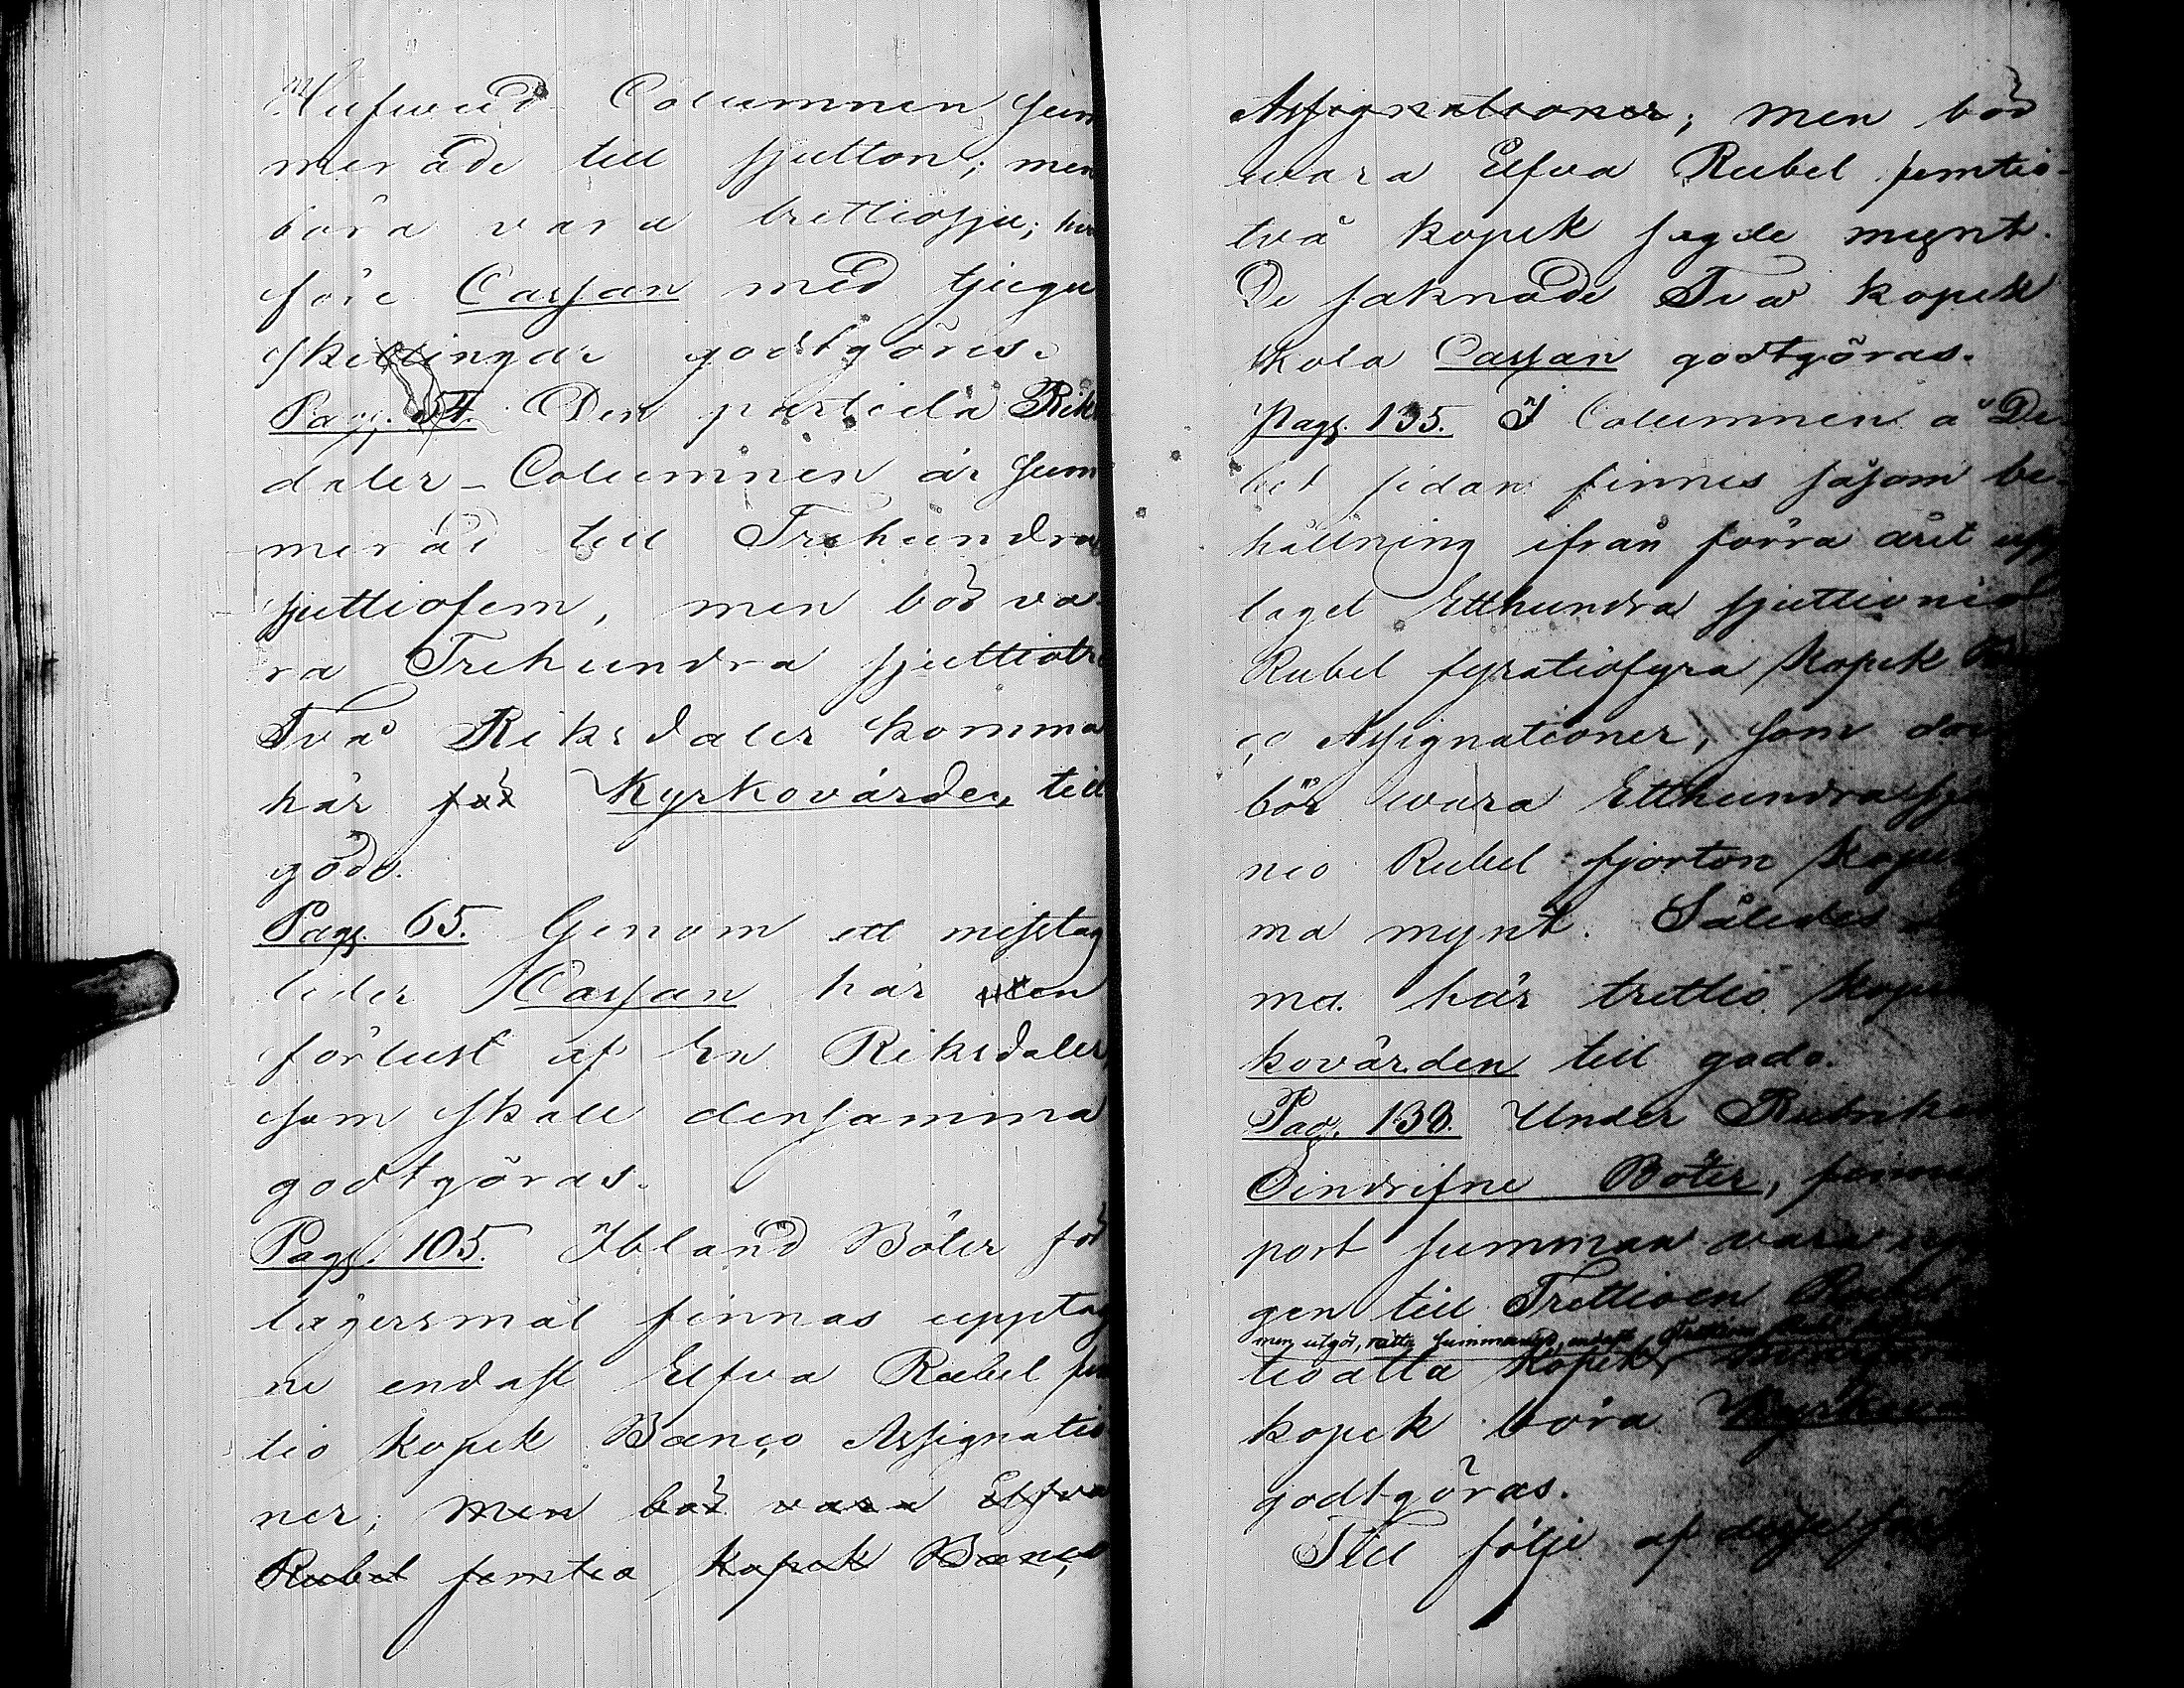 Hufwud-Columnen sum
merade till sjutton; men
böra vara trettiosju;
före Cassan med tjugu
skillingar godtgöres.
Pag. 54. Den särskilda Riks
daler-Columnen är sum
merad till Trehundra
sjuttiofem, men bör va-
ra Trehundra sjuttiotre
Två Riksdaler komma
här för Kyrkovärden till
godo.
Pag. 65. Genom ett misstag
lider Cassan här en
förlust af En Riksdaler,
som skall densamma
godtgöras.
Pag. 105. Ibland Böter för
lägersmål finnas upptag
ne endast Elfva Rubel fem
tio kopek Banco Assignatio
ner; men bör vara Elfva
Rubel femtio kopek Banco
Assignationer; men bör
wara Elfva Rubel femtio-
två kopek sagde mynt.
De saknade Två kopek
skola Cassan godtgöras.
Pag. 135. I Columnen å De
bet sidan finnes såsom be-
hållning ifrån förra året upp
taget Etthundra sjuttionio
Rubel fyratiofyra kopek
co Assignationer, som
bör wara Etthundra
nio Rubel fjorton kopek
ma mynt. Således
ma här trettio kopek
kovärden till godo.
Pag. 138. Under Rubriken
Oindrifne Böter, finnes
port summan vara
gen till Trettioen Rubel
men utgör, rätta summan endast Trettioen Rubel
tioåtta kopek
kopek böra Kyrkovär
godtgöras.
Till följe af desse